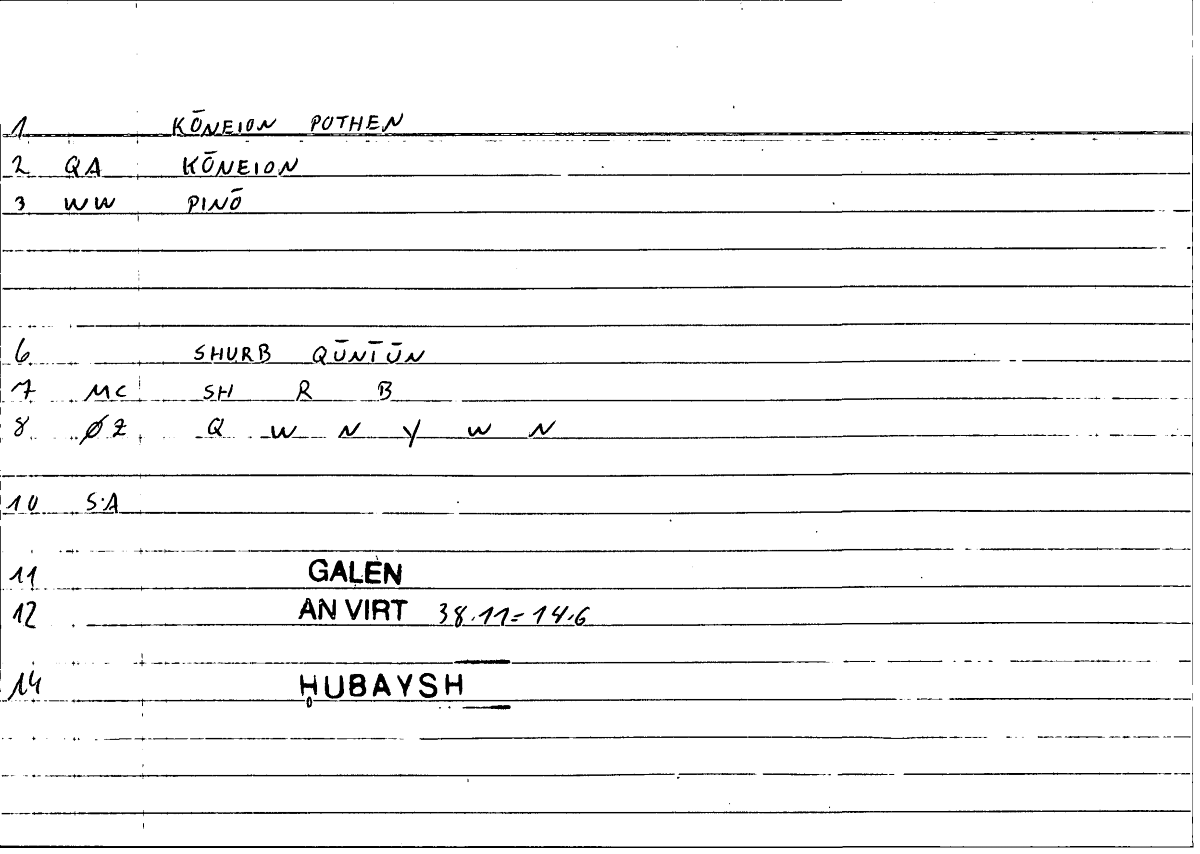 1 KŌNEION POTHEN
2 QA KŌNEION
3 WW PINŌ
6 SHURB QŪNĪŪN
7 MC SH R B
8 ØZ Q W N Y W N
10 S.A
11 GALEN
12 AN VIRT 38.11=14.6
14 ḤUBAYSH